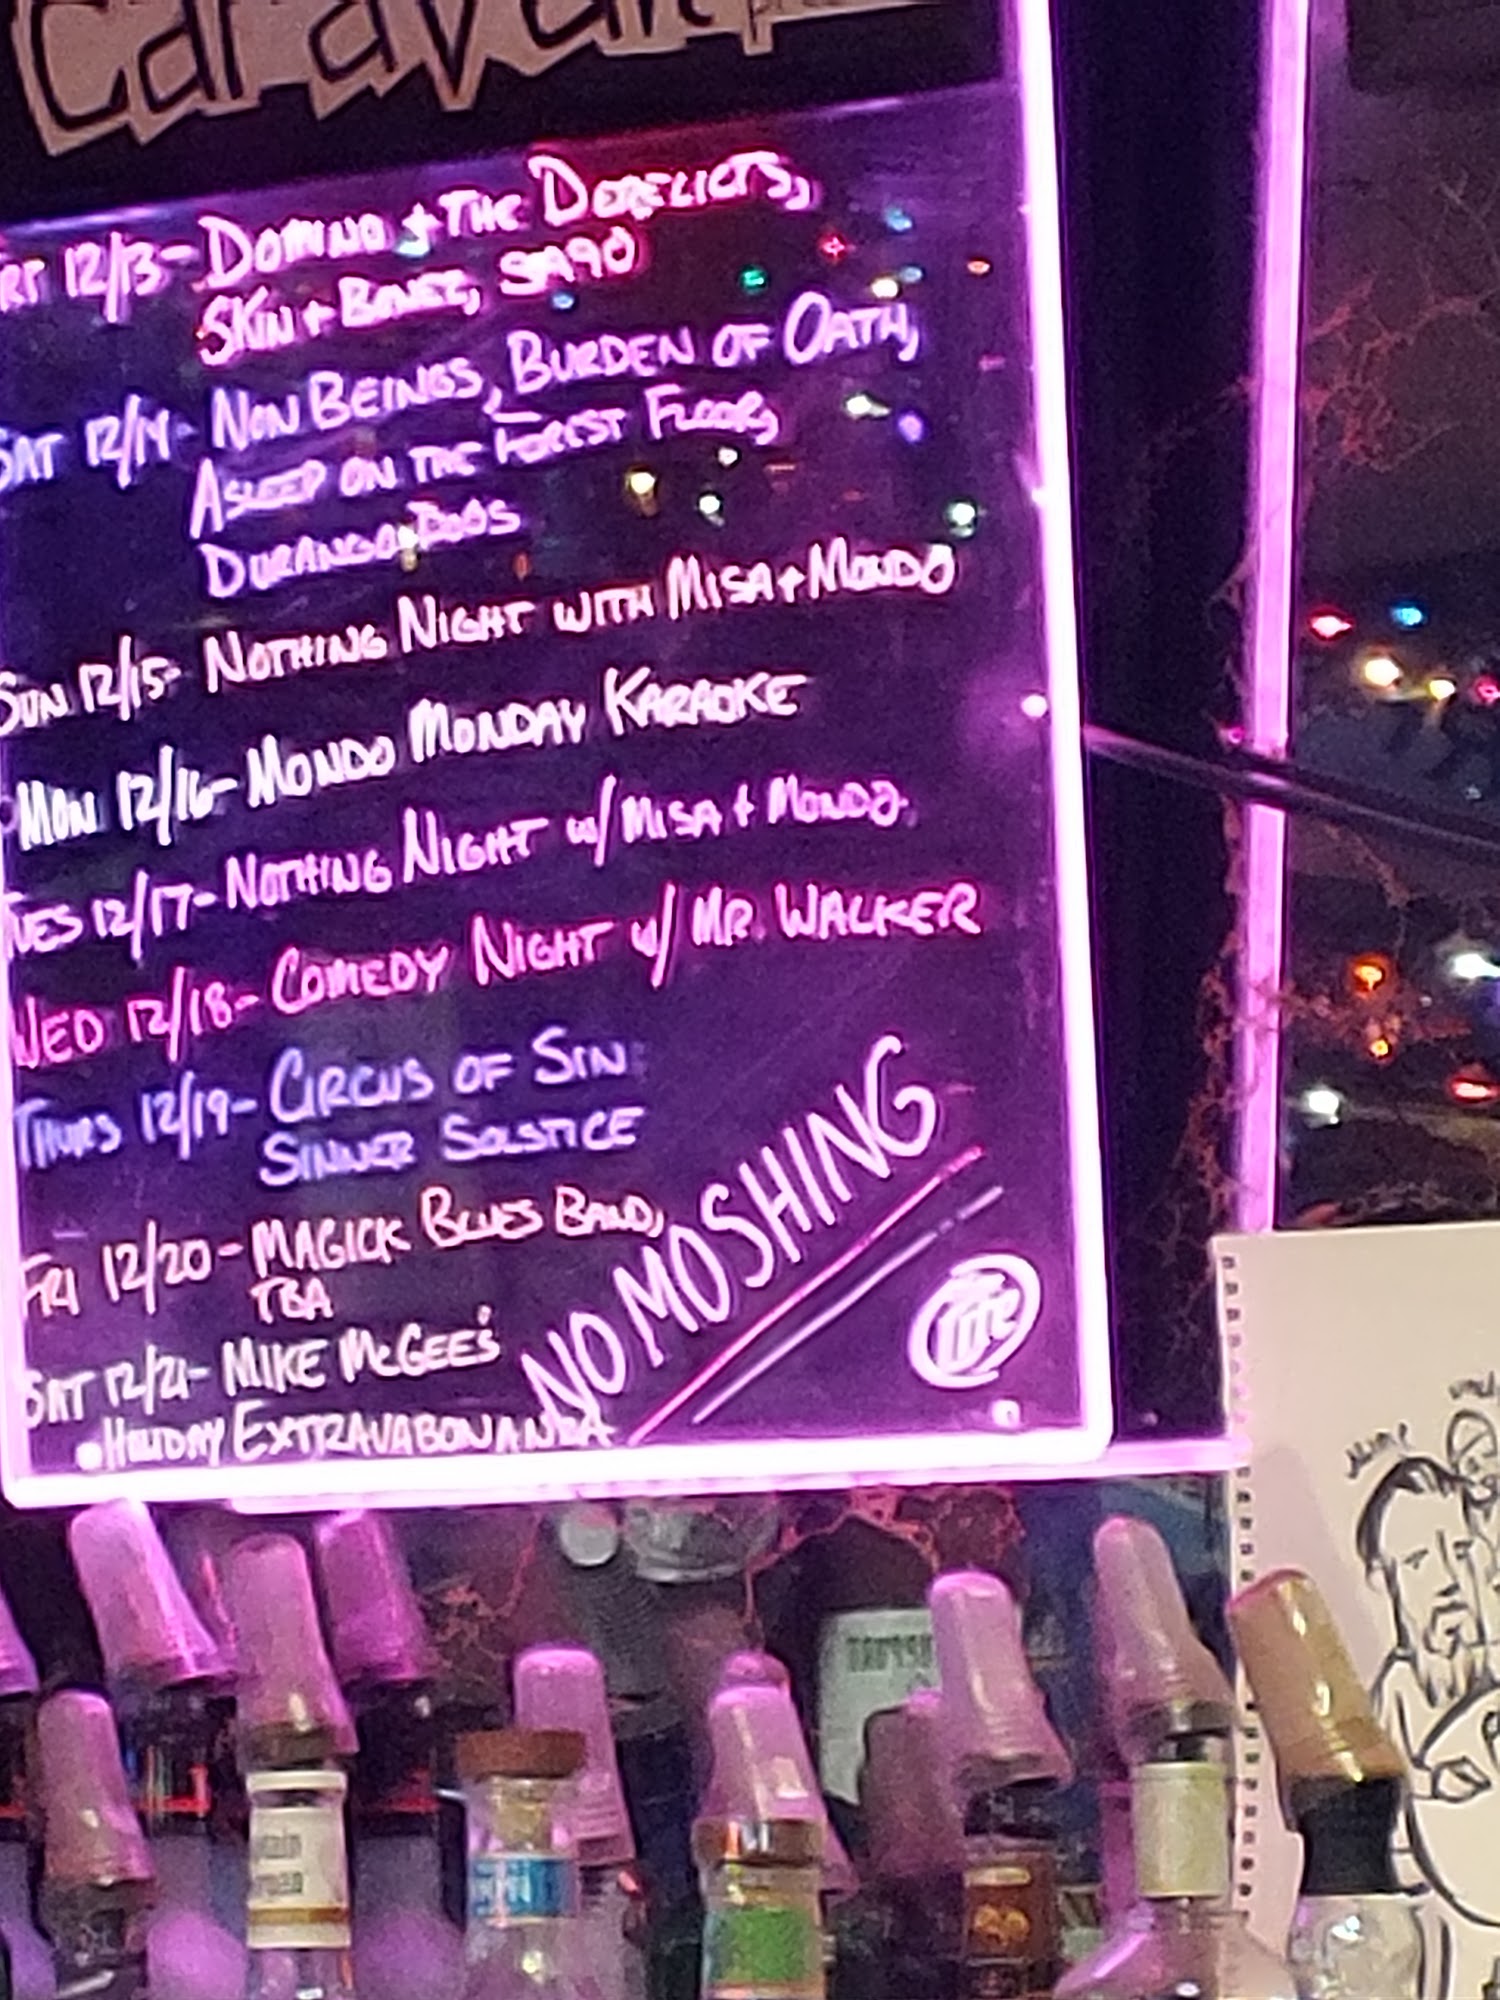 Caravan
FRI 12/13- DOMINO + THE DERELICTS,
SKIN + BONEZ, SA90
SAT 12/14- NON BEINGS, BURDEN OF OATH,
ASLEEP ON THE FOREST FLOOR,
DURANGO DOGS
SUN 12/15- NOTHING NIGHT WITH MISA + MONDO
MON 12/16- MONDO MONDAY KARAOKE
TUES 12/17- NOTHING NIGHT w/ MISA + MONDO
WED 12/18- COMEDY NIGHT w/ MR. WALKER
THURS 12/19- CIRCUS OF SIN:
SINNER SOLSTICE
FRI 12/20- MAGICK BLUES BAND,
TBA
SAT 12/21- MIKE McGEE'S
HOLIDAY EXTRAVABONANDA
NO MOSHING
Lite